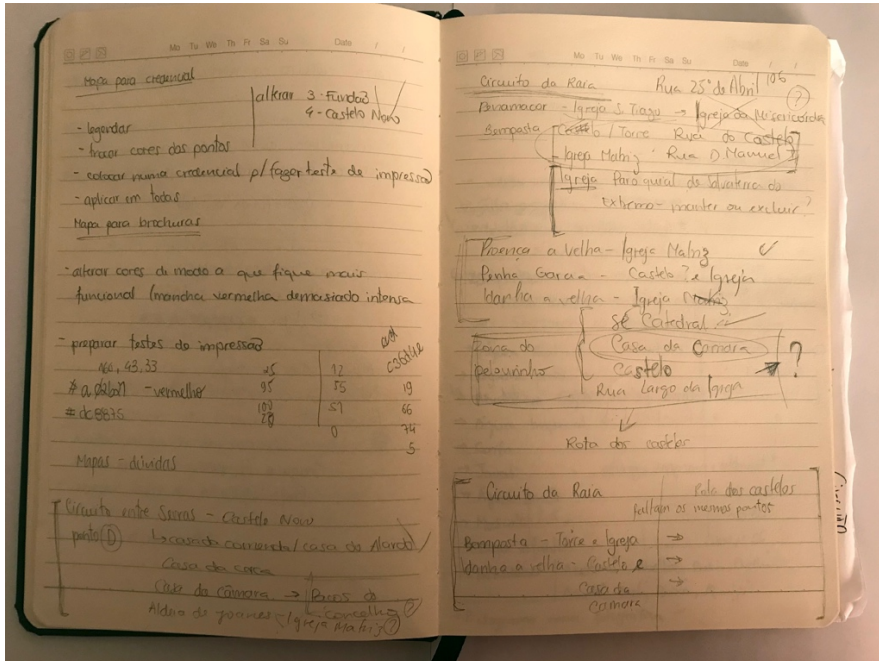 Mo Tu We Th Fr Sa Su Date / /
Mapa para credencial
alterar 3 - Fundão
4 - Castelo Novo
- legendar
- trocar cores dos pontos
- colocar numa credencial p/ fazer teste de impressão
- aplicar em todas
Mapa para brochuras
- alterar cores de modo a que fique mais
funcional (mancha vermelha demasiado intensa
- preparar testes de impressão
43, 33
12
95 55 19
- vermelho
# dc8876 100 51 66
28 0 74
5
Mapas - dúvidas
Circuito entre Serras - Castelo Novo
ponto D casa da comenda / casa do Alarcão
Casa da
Casa da câmara → Paços do
concelho ?
Aldeia de Joanes - (Igreja Matriz) ?
Mo Tu We Th Fr Sa Su Date / /
Circuito da Raia Rua 25 de Abril 106
?
Penamacor - Igreja S. Tiago → Igreja da Misericórdia
Bemposta Castelo / Torre Rua do Castelo
- Igreja Matriz - Rua D. Manuel I
Igreja Paroquial de Salvaterra do
Extremo - manter ou excluir?
Proença a Velha - Igreja Matriz ✓
Penha Garcia - Castelo ? e Igreja
Idanha a velha - Igreja Matriz
Sé Catedral
Zona do Casa da Camara
pelourinho Castelo ?
Rua Largo da Igreja
Rota dos castelos
Circuito da Raia Rota dos castelos
os mesmos pontos
Bemposta - Torre e Igreja →
Idanha a velha - Castelo e →
Casa da →
Camara